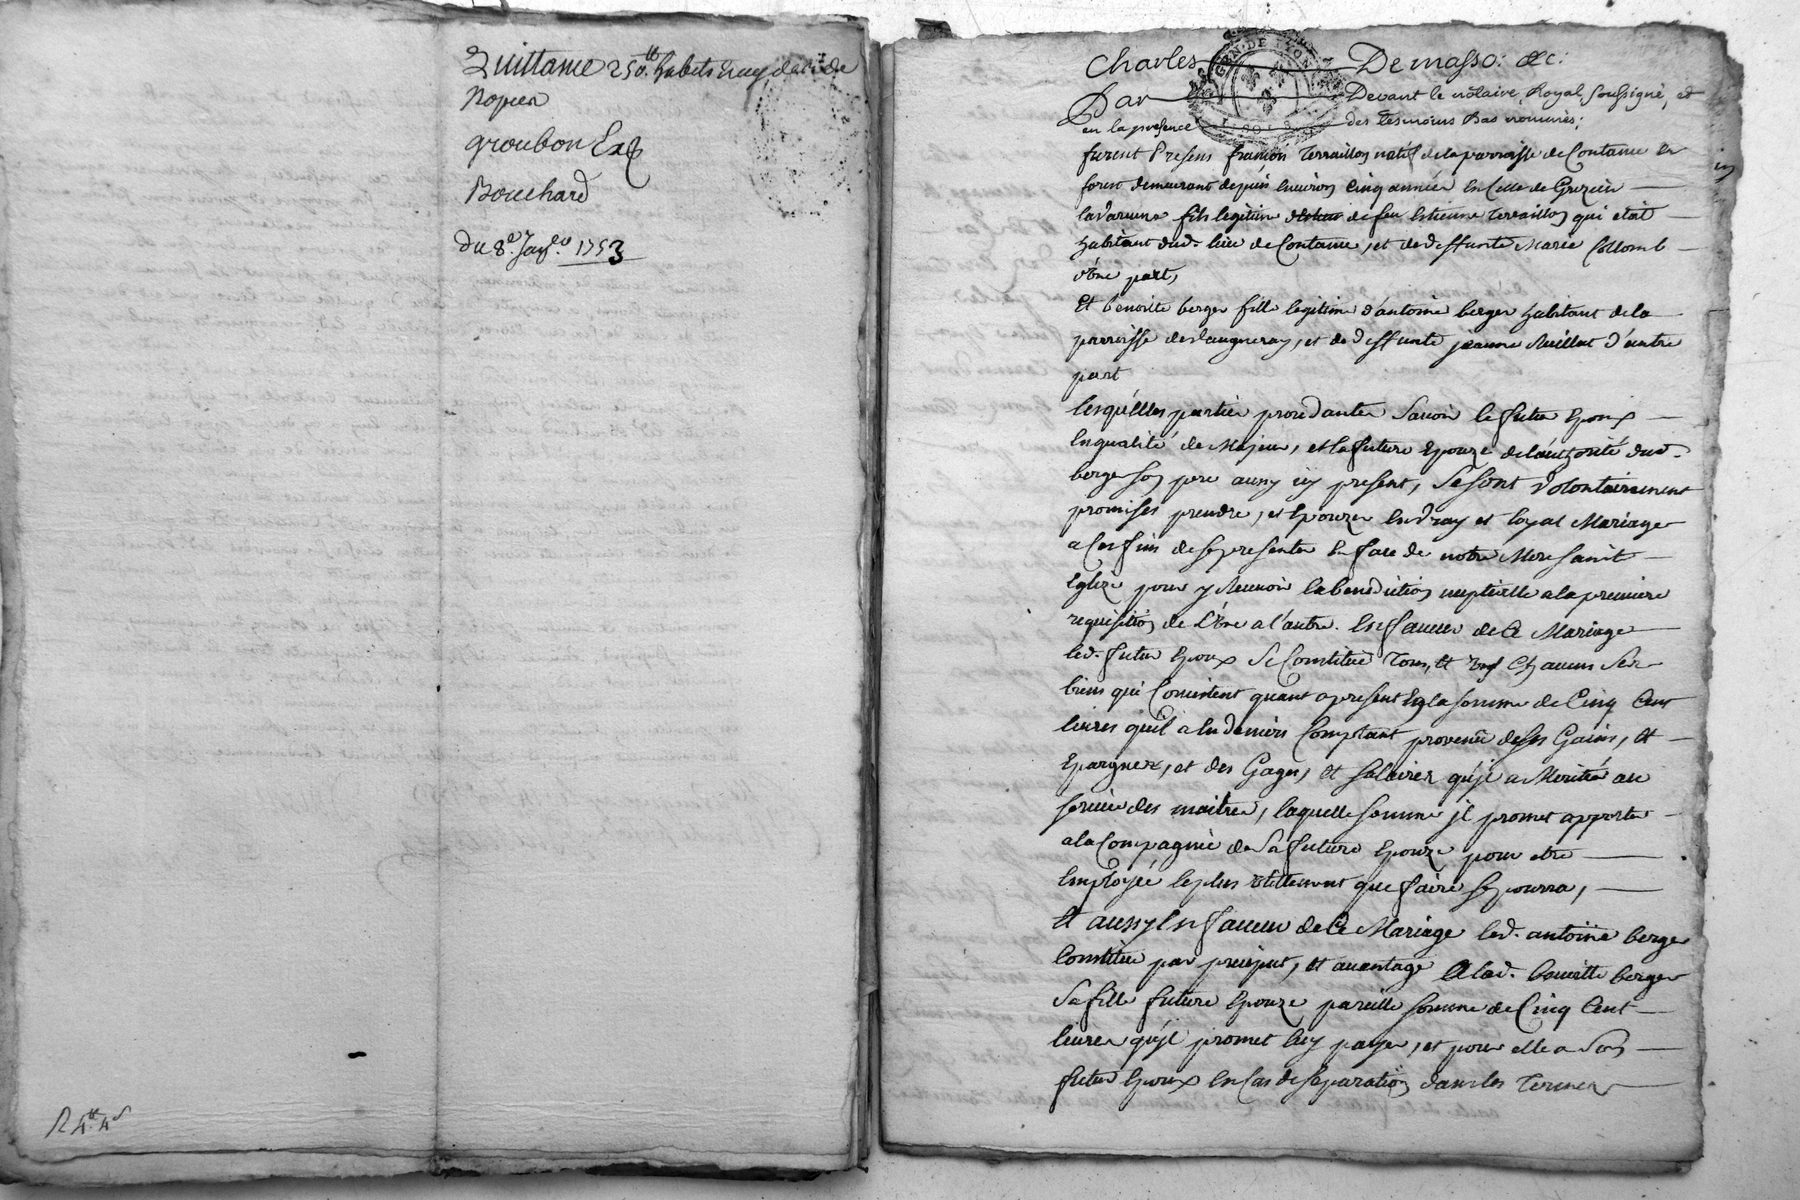 Quittance 250.tt habets
Nopces
Groubon
Bouchard
du 8.e Janv.er 1753
R 4.tt 4.s
GEN. DE LYON
Charles Demasso: &c:
Par Devant le notaire, Royal, Soussigné, et
en la presence des tesmoins Bas nommés;
furent Presens françois Terraillon natif de la parroisse de Contame en
forest demeurant depuis environ cinq années en celle de Grezieu
lavarenne fils legitime de feu Estienne Terraillon qui etoit
habitant dud. lieu de Contame, et de deffunte Marie Collomb
d'une part,
Et benoite berger fille legitime d'antoine berger habitant de la
parroisse de Vaugneray, et de deffunte jeanne d'autre
part
lesquelles parties procedantes Savoir le futur Epoux
en qualité de Majeur, et la future Epouze de l'authorité dud.
berger son pere aussy icy present, Se sont Volontairement
promises prendre, et Epouzer en vray et loyal Mariage
a ces fins de se presenter en face de notre Mere Sainte
Eglize pour y Recevoir la benediction nuptialle a la premiere
requisition de l'Une a l'autre. En faveur de Ce Mariage
led. futur Epoux Se Constitue Tous, Et Chacuns Ses
biens qui Consistent quant a present En la somme de Cinq Cent
livres qu'il a en deniers Comptant provenue de ses Gains, Et
Epargnes, et des Gages, Et Salaires qu'il a Merité au
service des maitres, laquelle somme il promet apporter
a la Compagnie de Sa future Epouze pour etre
Employée le plus Utillement que faire se pourra,
Et aussy En faveur de Ce Mariage led. antoine berger
Constitue par preciput, Et avantage A lad. benoitte berger
Sa fille future Epouze pareille somme de Cinq Cent
livres qu'il promet luy payer, et pour elle a Son
futur Epoux en Cas de separation dans les Termes